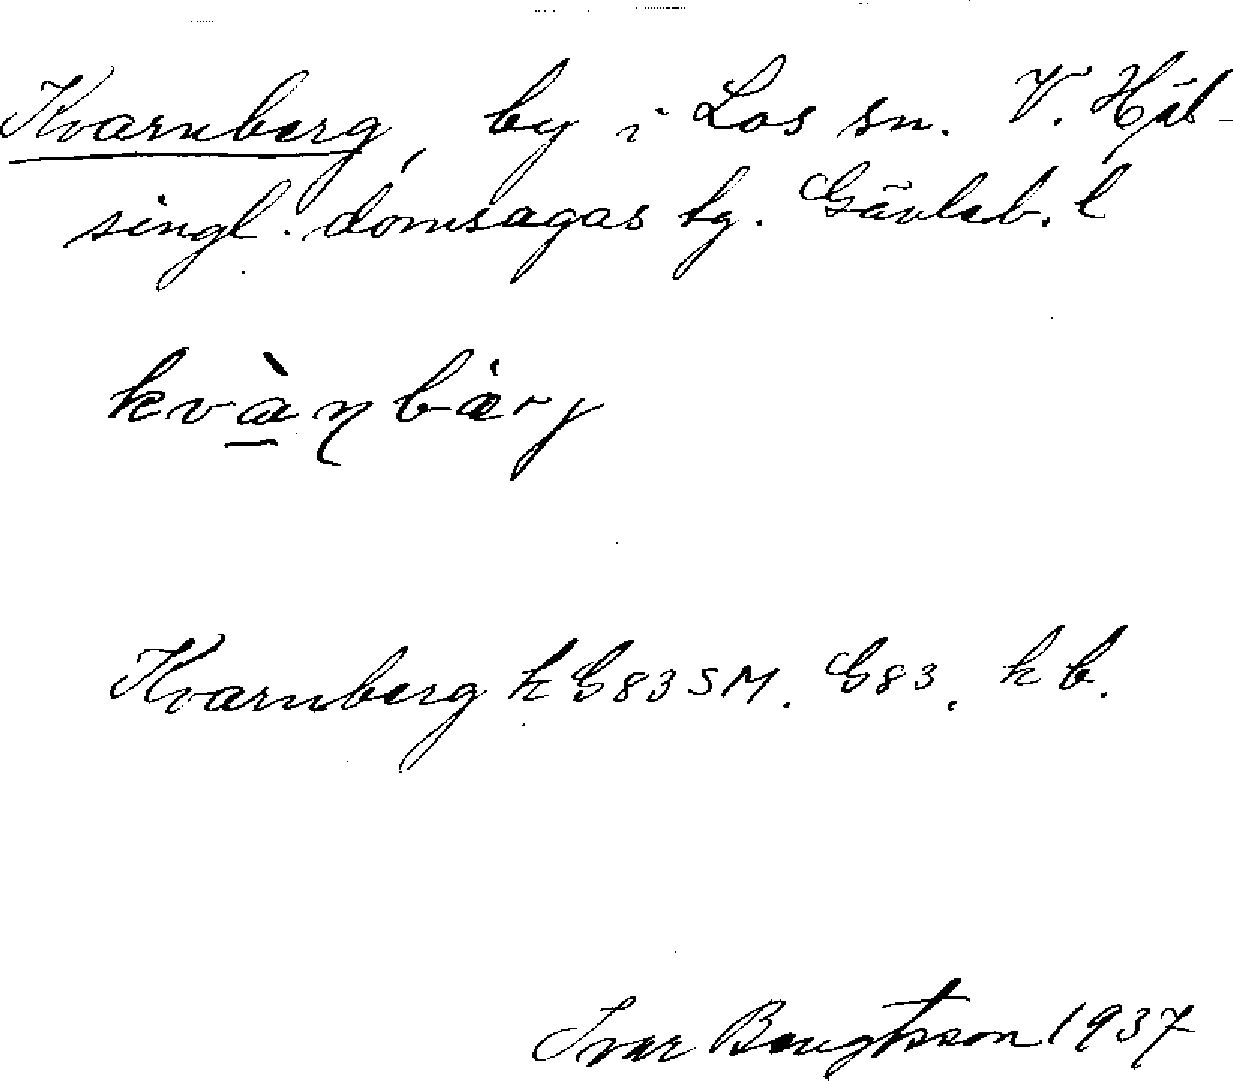 Kvarnberg, by i Los sn. V. Häl-
singl. domsagas tg. Gävleb. l
kvàṇbärj
Kvarnberg k G83SM. G83. kb.
Ivar Bengtsson 1937